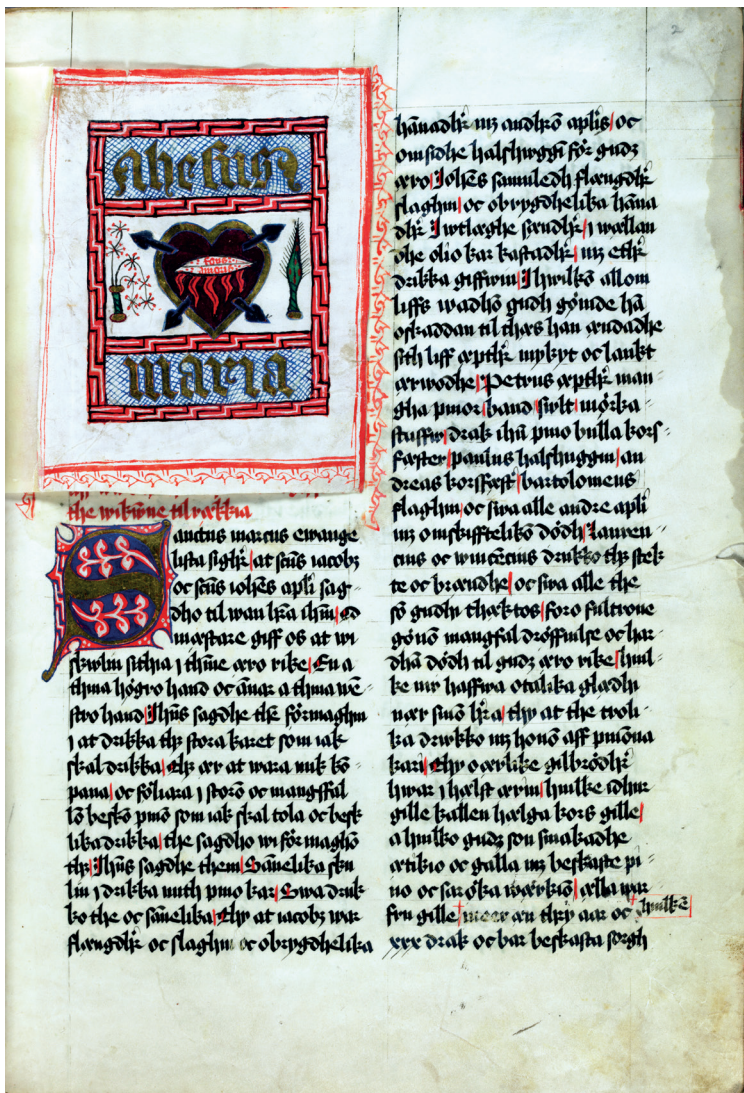 2
Ahesus
maria
the wikūne til rækkia
Sanctus marcus ewange
lista sigħr at scūs iacobꝫ
oc scūs iohēs apłi sag
dho til wan hra ihm
mæstare giff os at wi
skwlm sithia j thine æro rike En a
thina högro hand oc ānar a thina wē
stro hand Jħus sagdhe thē förmaghin
j at drikka thꝫ stora karet som iak
skal drikka thꝫ ær at wara mik kō
pana oc föliara j storō oc mangffal
lō beskō pinō som iak skal tola oc besk
lika drikka the sagdho wi förmaghō
thꝫ Jħus sagdhe them Sānelika sku
lin j drikka mith pino kar Swa druk
ko the oc sānelika thy at iacobꝫ war
flængdħr oc slaghin oc obrygdhelika
hānadħr mꝫ andhrō apłis oc
omsidhe halshwggī för gudz
æro Johēs samuledh flængdħr
slaghin oc obrygdhelika hāna
dħr J wtlæghe sændħr j wællan
dhe olio kar kastadħr mꝫ ethr
drikka giffwin J hwilkō allom
liffs wadhō gudh gömde hā
oskaddan til thæs han ændadhe
sith liff æpthr mykyt oc lankt
ærwodhe Petrus æpthr man
gha pinor band swlt mörka
stuffw drak ihū pino bulla kors
fæster paulus halshuggin an
dreas korsfæst bartolomeus
slaghin oc swa alle andre apłi
mꝫ omskifftelikō dödh lauren
cius oc wincēcius drukko thꝫ stek
te oc brændhe oc swa alle the
sō gudhi thæktos foro fultrone
gönō mangfal dröffuilse oc har
dhā dödh til gudz æro rike huil
ke nw haffwa otalika glædhi
nær sinō hra thy at the troli
ka drwkko mꝫ honō aff pinōna
kari Thy o ærlike gilbrödħr
hwar j hælst ærin huilke idhur
gille kallen hælga kors gille
a huilko gudz son smakadhe
ætikio oc galla mꝫ beskaste pi
no oc saröka wærkiō ælla war
fru gille meer æn thry aar oc hwilkē
xxx drak oc bar beskasta sorgh